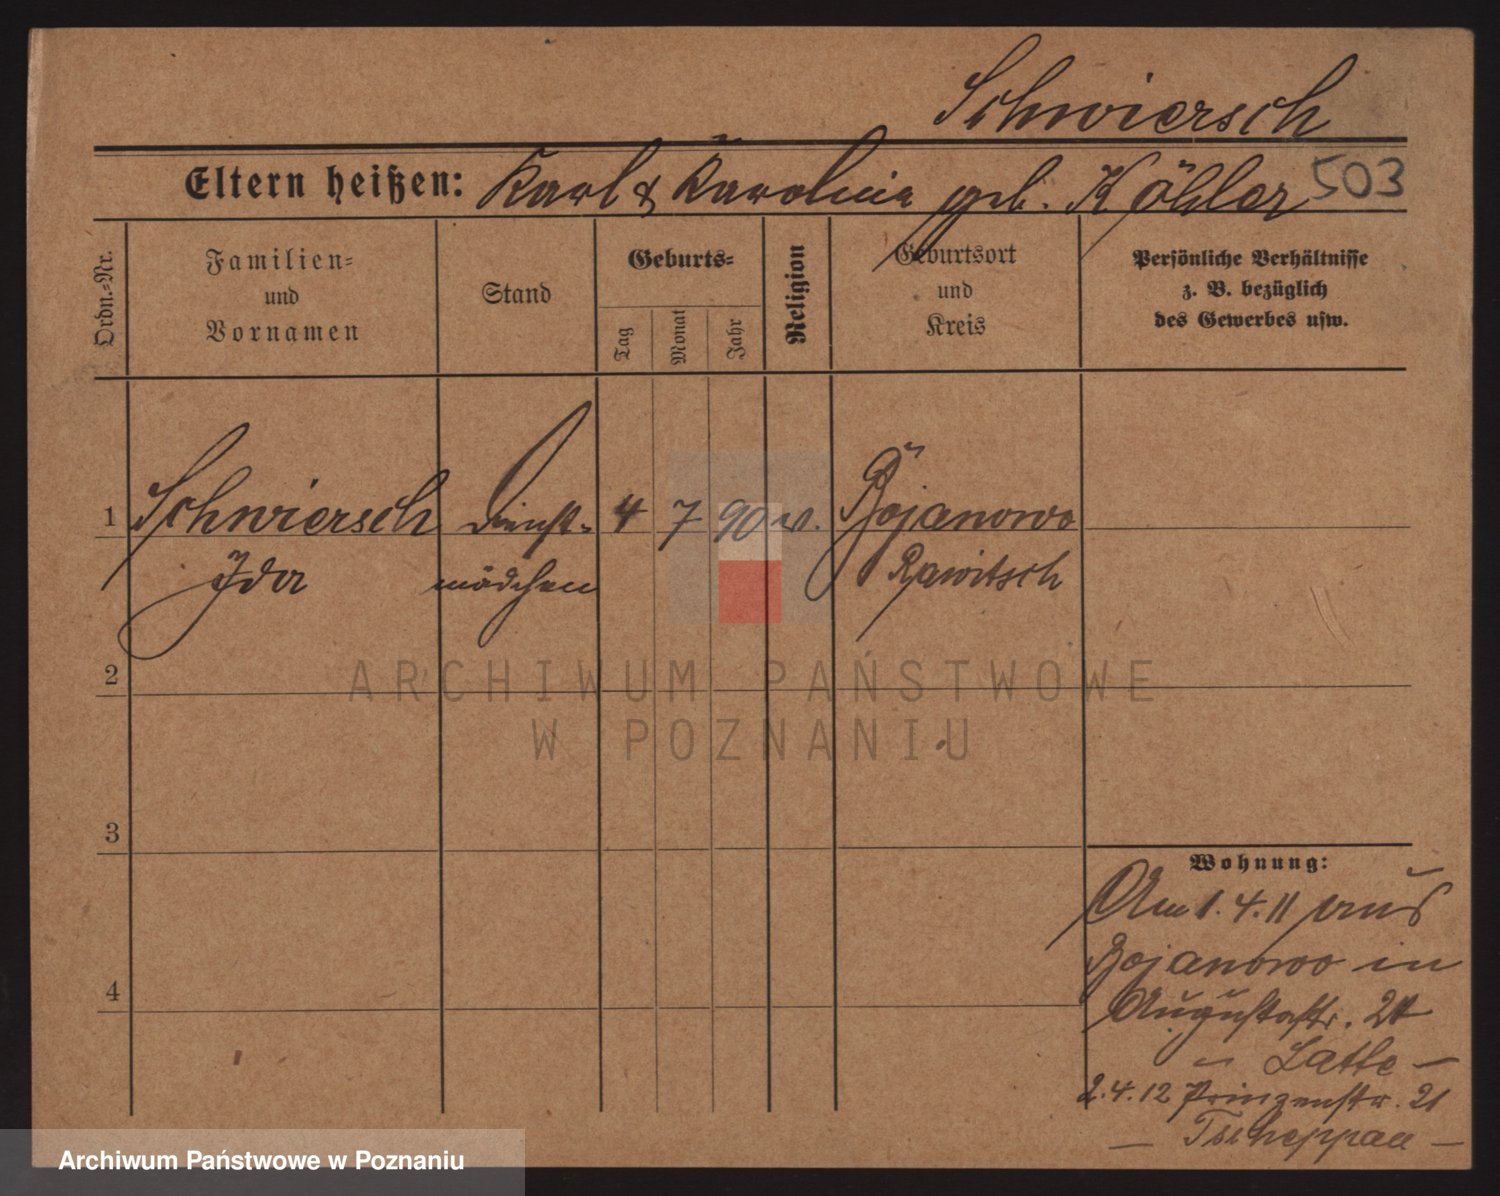 Schwiersch
Eltern heißen: Karl & Karoline geb. Köhler 503
Ordn.-Nr.
Familien-
und
Vornamen
Stand
Geburts-
Tag
Monat
Jahr
Religion
Geburtsort
und
Kreis
Persönliche Verhältnisse
z. B. bezüglich
des Gewerbes usw.
1 Schwiersch Dienst- 4 7 90 Bojanowo
Ida mädchen Rawitsch
2
3
4
Wohnung:
Am 1.4.11 aus
Bojanowo in
Augustastr.
– Latte –
2.4.12 Prinzenstr. 21
– Tscheppau –
ARCHIWUM PAŃSTWOWE
W POZNANIU
Archiwum Państwowe w Poznaniu